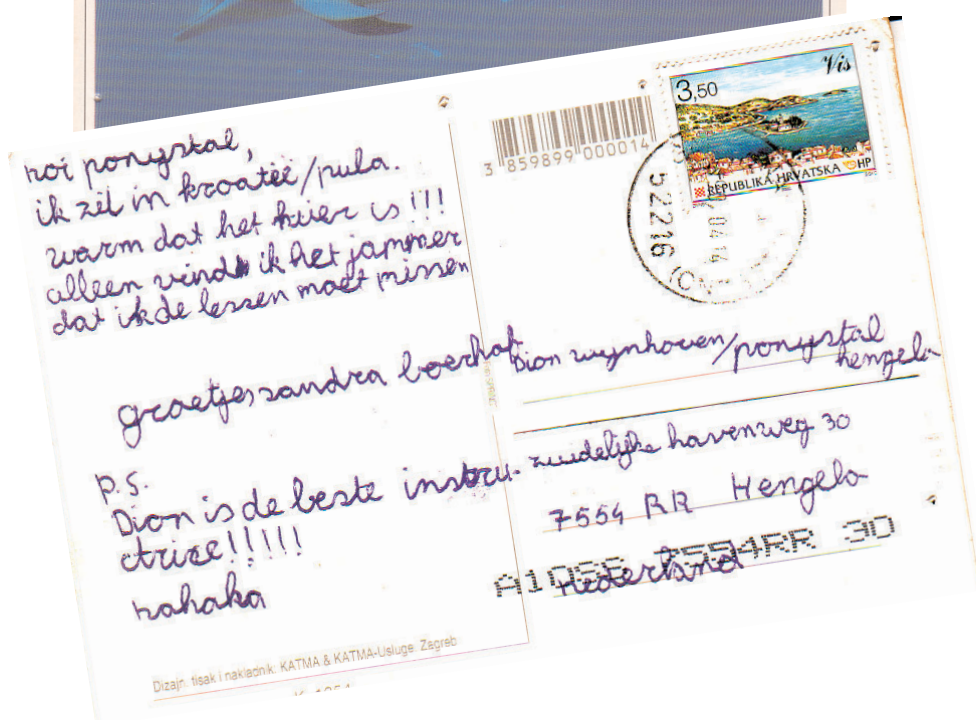 hoi ponystal,
ik zit in kroatië/pula.
warm dat het hier is!!!
alleen vind ik het jammer
dat ik de lessen moet missen
groetjes sandra boerhof
p.s.
Dion is de beste instru-
ctrice!!!!!
hahaka
Dizajn, tisak i nakladnik: KATMA & KATMA-Usluge, Zagreb
3 859899 000014
3,50
Vis
REPUBLIKA HRVATSKA HP
52216
Dion wynhoven/ponystal
hengelo
zuidelijke havenweg 30
7554 RR Hengelo
Nederland
7554RR 30